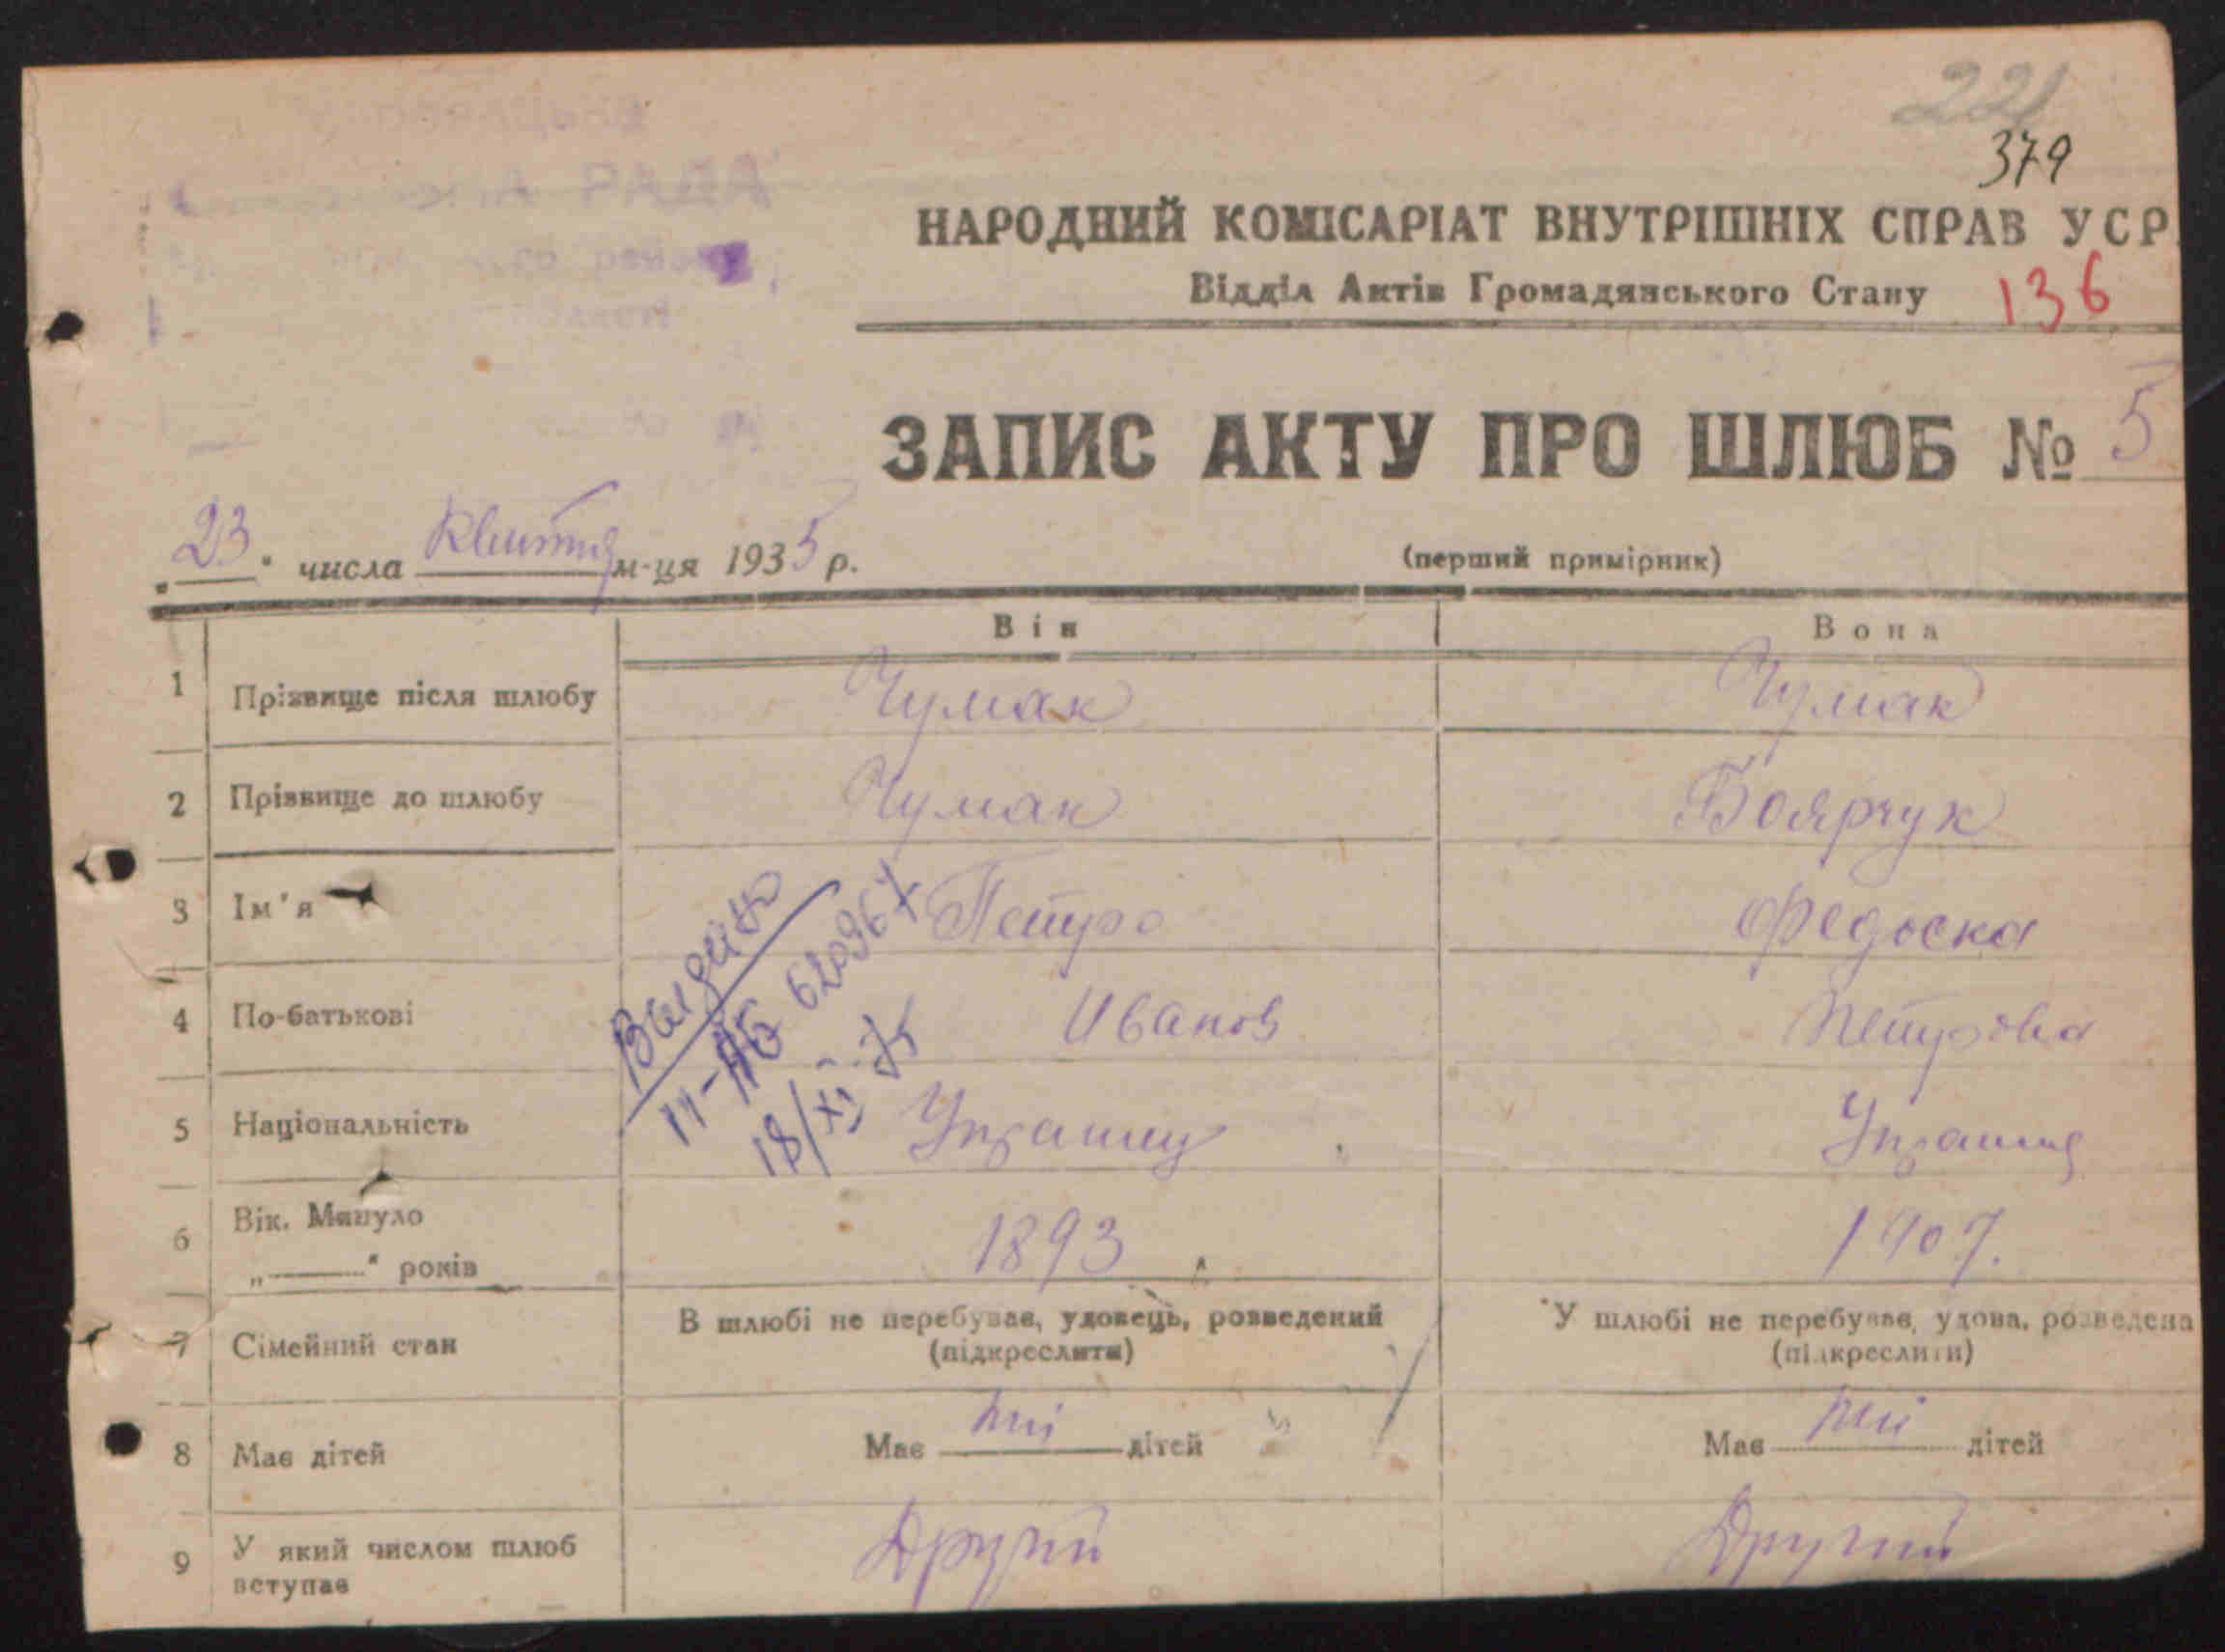 221
379
РАДА
НАРОДНИЙ КОМІСАРІАТ ВНУТРІШНІХ СПРАВ УСР
Відділ Актів Громадянського Стану 136
ЗАПИС АКТУ ПРО ШЛЮБ № 5
„23" числа квитня м-ця 1935 р.
(перший примірник)
Він Вона
1 Прізвище після шлюбу Чумак Чумак
2 Прізвище до шлюбу Чумак Боярчук
3 Ім'я Петро Федоска
4 По-батькові Иванов Петрова
5 Національність
Видано
620967
18/XI 75
6 Вік. Минуло 1893 1907.
„——" років
7 Сімейний стан В шлюбі не перебував, удовець, розведений У шлюбі не перебував, удова, розведена
(підкреслити) (підкреслити)
8 Має дітей Має дітей Має дітей
9 У який числом шлюб Другий Другий
вступає